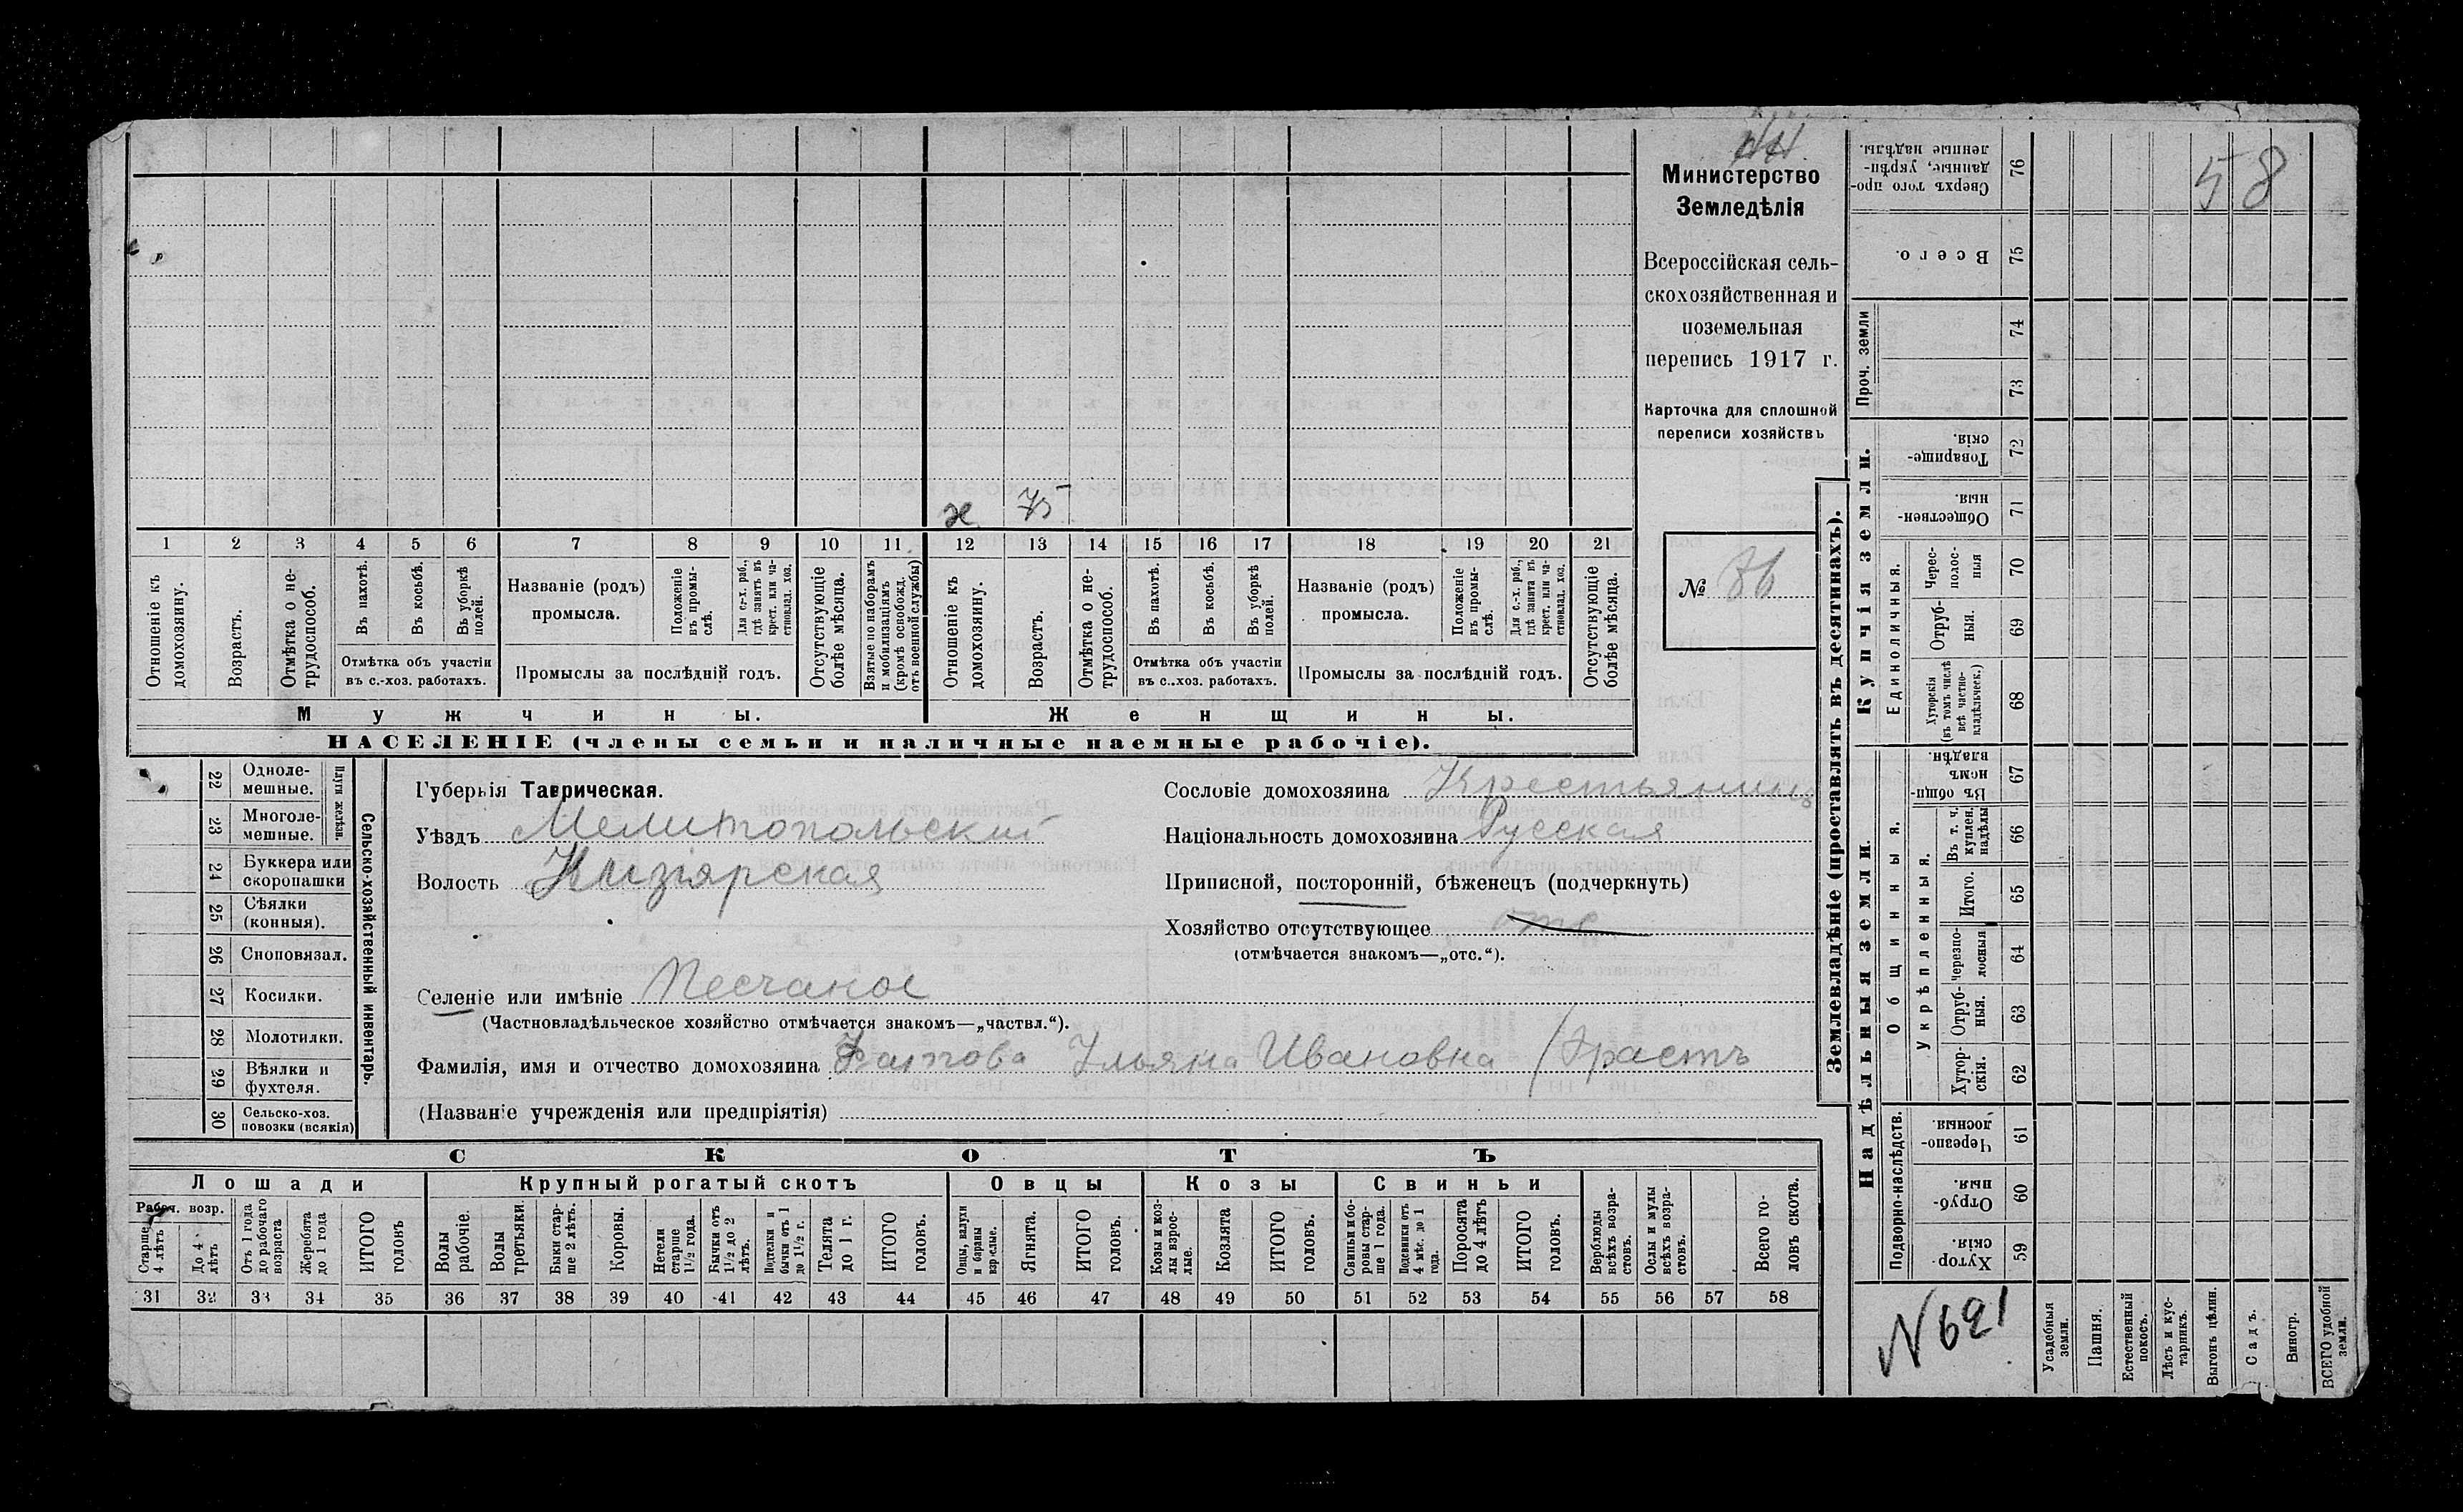 Министерство
Земледѣлія
Всероссійская сель-
скохозяйственная и
поземельная
перепись 1917 г.
Карточка для сплошной
переписи хозяйствъ
№ 76
ж 75
1 2 3 4 5 6 7 8 9 10 11 12 13 14 15 16 17 18 19 20 21
Отношеніе къ домохозяину.
Возрастъ.
Отмѣтка о не-трудоспособ.
Въ пахотѣ.
Въ косьбѣ.
Въ уборкѣ полей.
Отмѣтка объ участіи
въ с.-хоз. работахъ.
Названіе (родъ)
промысла.
Положеніе въ промы-слѣ.
Для с.-х. раб., гдѣ занятъ въ крест. или ча-стновлад. хоз.
Промыслы за послѣдній годъ.
Отсутствующіе болѣе мѣсяца.
Взятые по наборамъ и мобилизаціямъ (кромѣ освобожд. отъ военной службы)
Отношеніе къ домохозяину.
Возрастъ.
Отмѣтка о не-трудоспособ.
Въ пахотѣ.
Въ косьбѣ.
Въ уборкѣ полей.
Отмѣтка объ участіи
въ с.-хоз. работахъ.
Названіе (родъ)
промысла.
Положеніе въ промы-слѣ.
Для с.-х. раб., гдѣ занятъ въ крест. или ча-стновлад. хоз.
Промыслы за послѣдній годъ.
Отсутствующіе болѣе мѣсяца.
Мужчины.
Женщины.
НАСЕЛЕНІЕ (члены семьи и наличные наемные рабочіе).
Сельско-хозяйственный инвентарь.
Плуги желѣзн.
22 Одноле-мешные.
23 Многоле-мешные.
24 Буккера или скоропашки
25 Сѣялки (конныя).
26 Сноповязал.
27 Косилки.
28 Молотилки.
29 Вѣялки и фухтеля.
30 Сельско-хоз. повозки (всякія)
Губернія Таврическая.
Уѣздъ Мелитопольскій
Волость Кизіярская
Сословіе домохозяина Крестьянинъ
Національность домохозяина Русская
Приписной, посторонній, бѣженецъ (подчеркнуть)
Хозяйство отсутствующее отс
(отмѣчается знакомъ—„отс.“).
Селеніе или имѣніе Песчаное
(Частновладѣльческое хозяйство отмѣчается знакомъ—„частвл.“).
Фамилія, имя и отчество домохозяина Ульяна Ивановна
(Названіе учрежденія или предпріятія)
СКОТЪ
Лошади
Крупный рогатый скотъ
Овцы
Козы
Свиньи
Рабоч. возр.
Старше 4 лѣтъ
До 4 лѣтъ
Отъ 1 года до рабочаго возраста
Жеребята до 1 года
ИТОГО головъ
Волы рабочіе.
Волы третьяки.
Быки стар-ше 2 лѣтъ.
Коровы.
Нетели старше 1½ года.
Бычки отъ 1½ до 2 лѣтъ.
Подтелки и бычки отъ 1 до 1½ г.
Телята до 1 г.
ИТОГО головъ.
Овцы, валухи и бараны взрослые.
Ягнята.
ИТОГО головъ.
Козы и коз-лы взрос-лые.
Козлята
ИТОГО головъ.
Свиньи и бо-ровы стар-ше 1 года.
Подсвинки отъ 4 мѣс. до 1 года.
Поросята до 4 лѣтъ
ИТОГО головъ.
Верблюды всѣхъ возра-стовъ.
Ослы и мулы всѣхъ возра-стовъ.
Всего го-ловъ скота.
31 32 33 34 35 36 37 38 39 40 41 42 43 44 45 46 47 48 49 50 51 52 53 54 55 56 57 58
Землевладѣніе (проставлять въ десятинахъ).
Купчія земли.
Надѣльныя земли.
76 Сверхъ того про-данные, укрѣп-ленные надѣлы.
75 Всего.
Проч. земли
74
73
72 Товарище-скія.
71 Обществен-ныя.
Единоличныя.
70 Черес-полос-ныя
69 Отруб-ныя.
68 Хуторскія (въ томъ числѣ всѣ частно-владѣльческ.)
Общинныя.
67 Въ общи-номъ владѣн.
Укрѣпленныя.
66 Въ т. ч. куплен. надѣлы
65 Итого.
64 Черезпо-лосныя
63 Отруб-ныя.
62 Хутор-скія.
Подворно-наслѣдств.
61 Черезпо-лосныя.
60 Отруб-ныя.
59 Хутор-скія.
Усадебныя земли.
Пашня.
Естественный покосъ.
Лѣсъ и кус-тарникъ.
Выгонъ цѣлин.
Садъ.
Виногр.
ВСЕГО удобной земли.
58
N 621